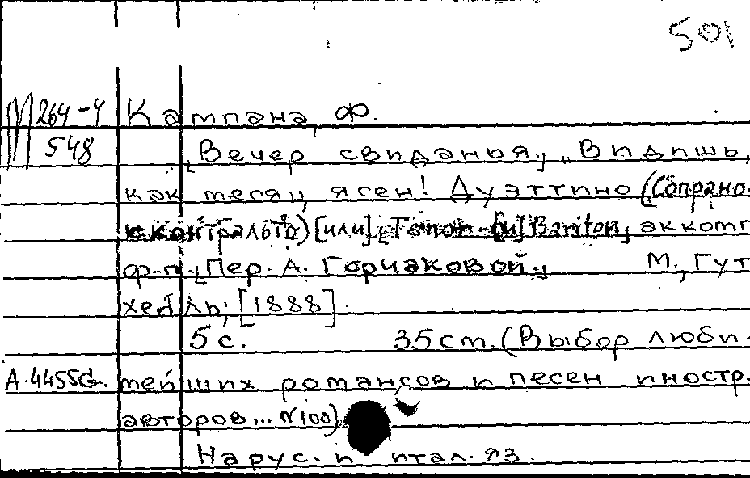 501
М 264-4 Кампана, Ф.
548 [Вечер свиданья.] „Видишь,
как месяц ясен! Дуэттино (Сопрано
и контральто) [или] [Тенор и] Bariton, аккомп
ф.-п. [Пер. А. Горчаковой.] М., Гут
хейль, [1888].
5 с. 35 cm. (Выбор люби-
А.4455 тейших романсов и песен иностр.
авторов... №100)
На рус. и итал. яз.